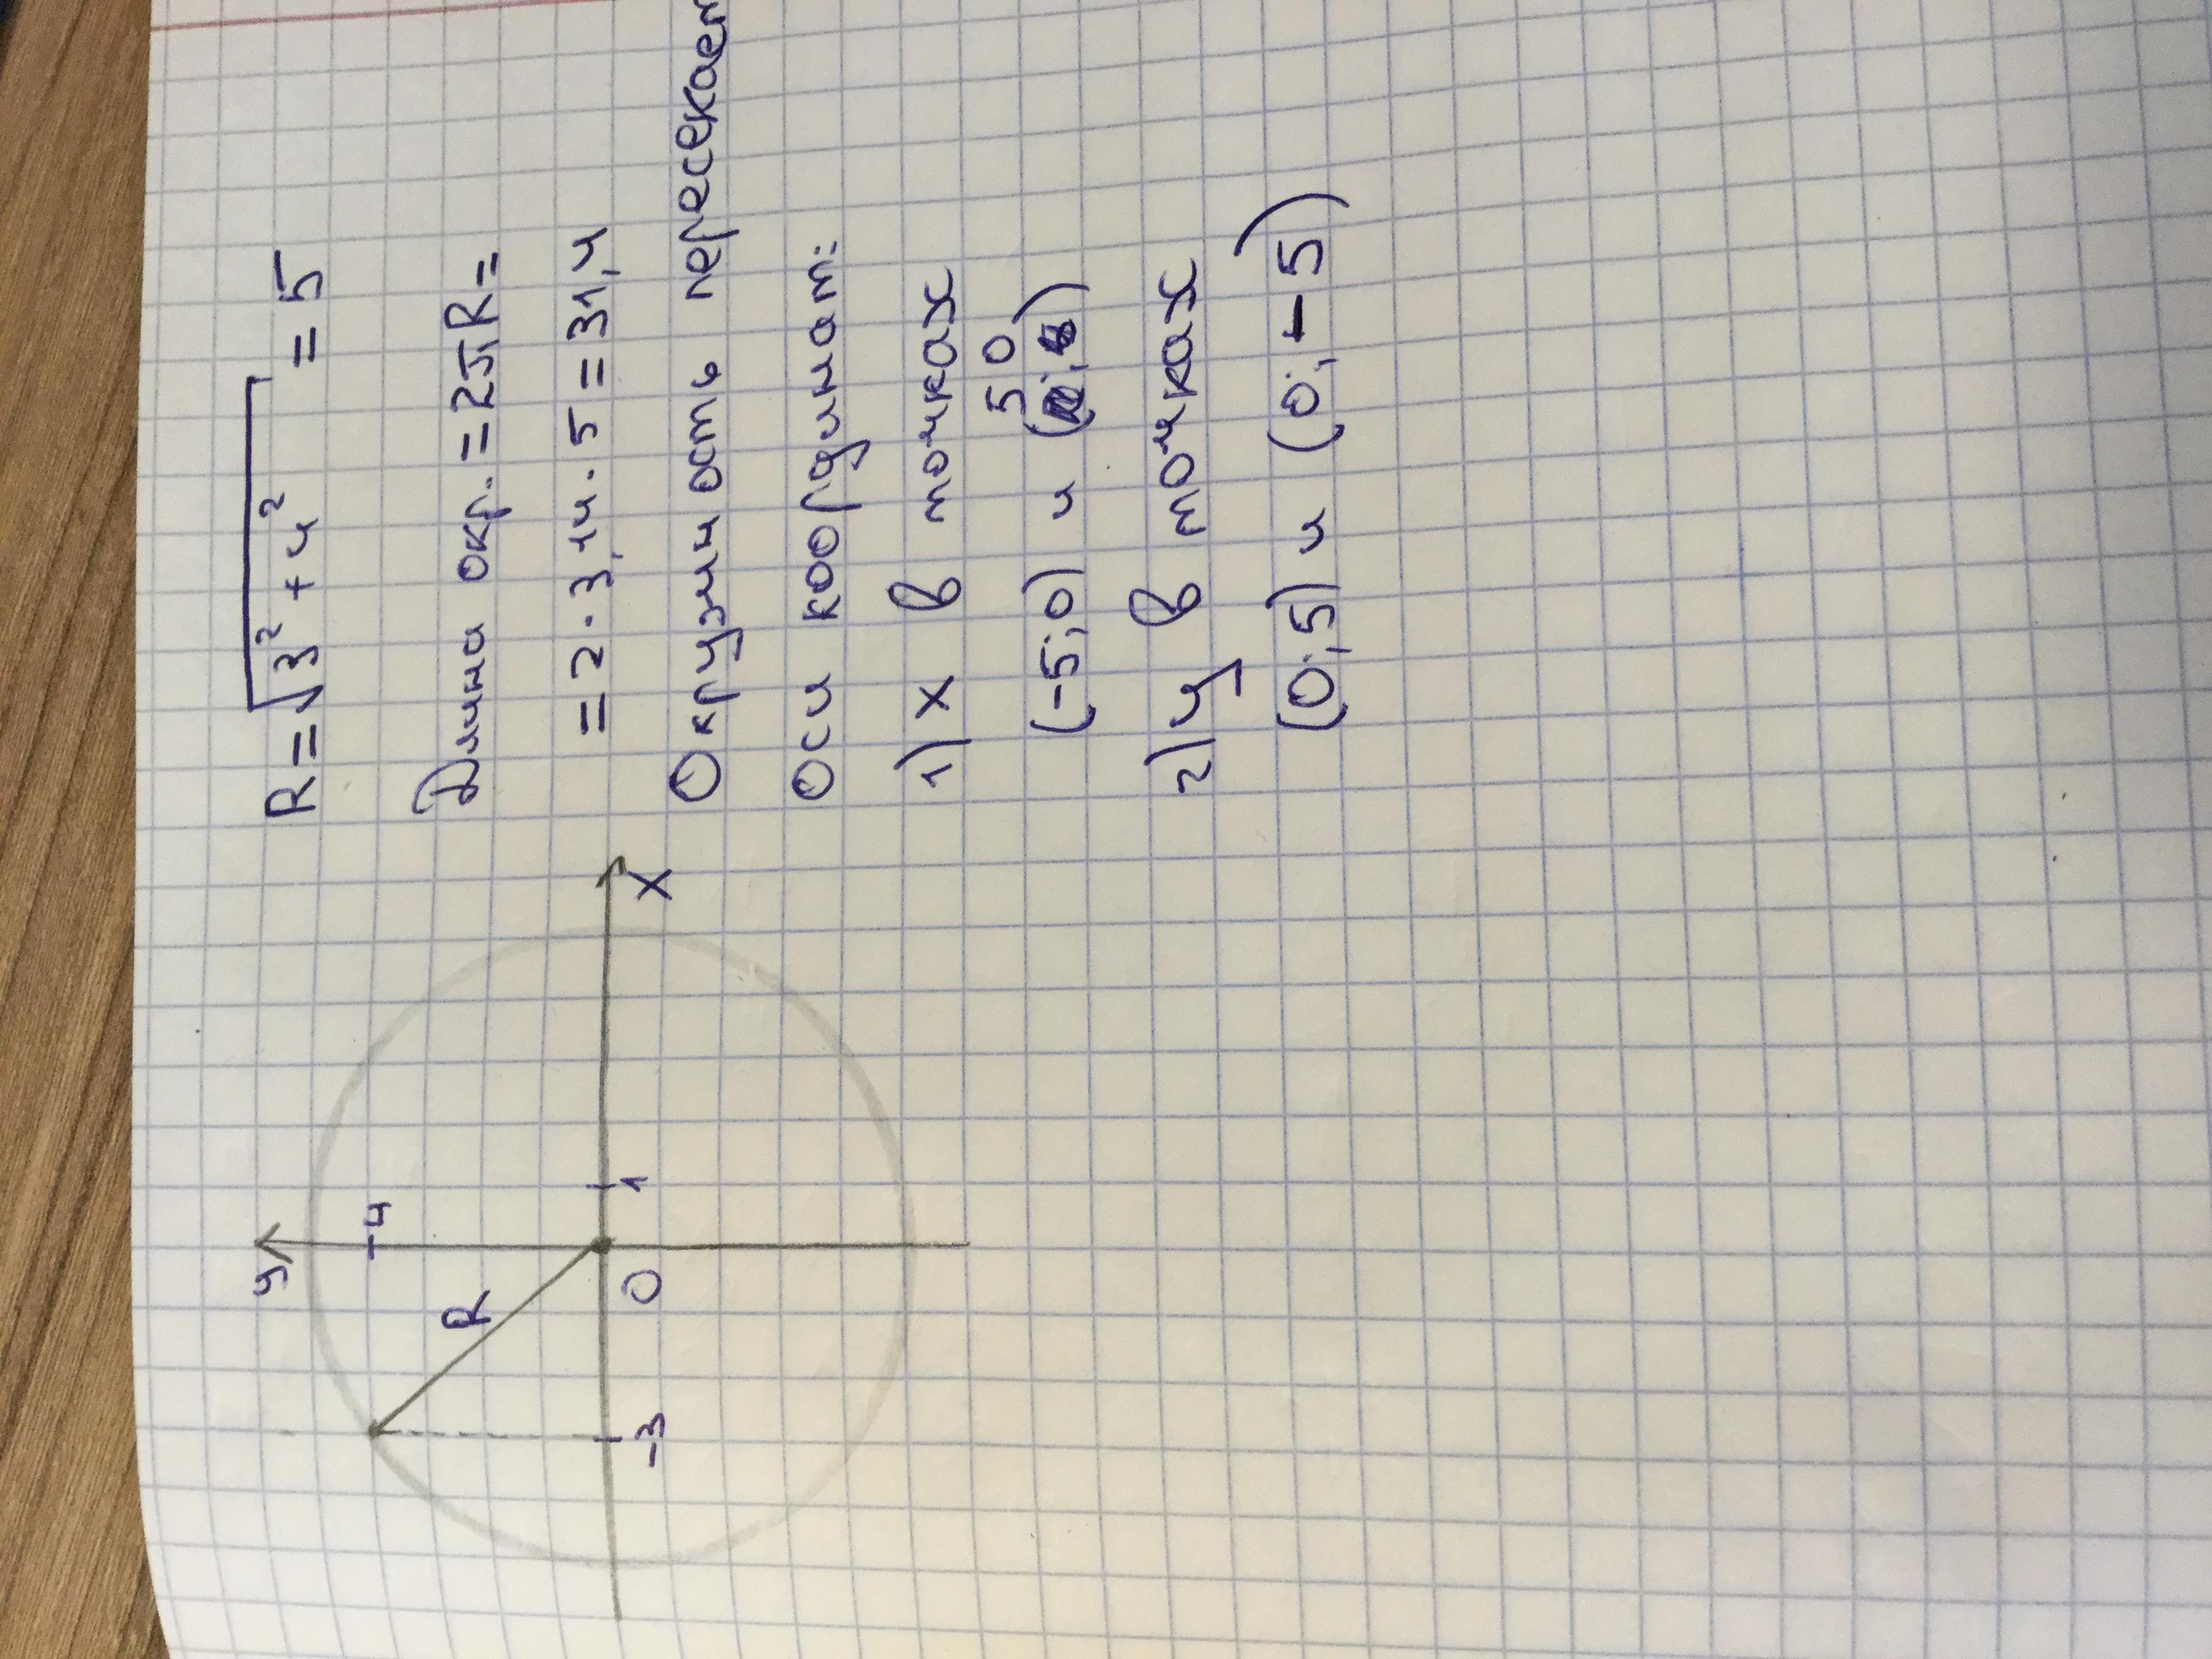 R = √3² + 4² = 5
Длина окр. = 2πR =
= 2 · 3,14 · 5 = 31,4
Окружность пересекает
оси координат:
1) x в точках
5 0
(-5; 0) и ( ; )
2) y в точках
(0; 5) и (0; -5)
y
-4
R
0
1
x
-3